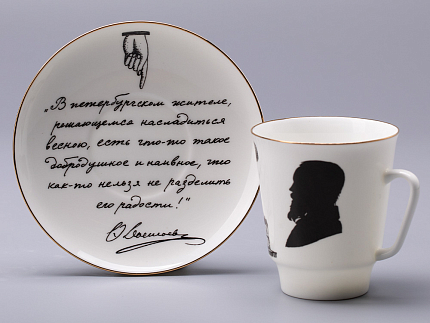 „В петербургском жителе,
решающемся насладиться
весною, есть что-то такое
добродушное и наивное, что
как-то нельзя не разделить
его радости!"